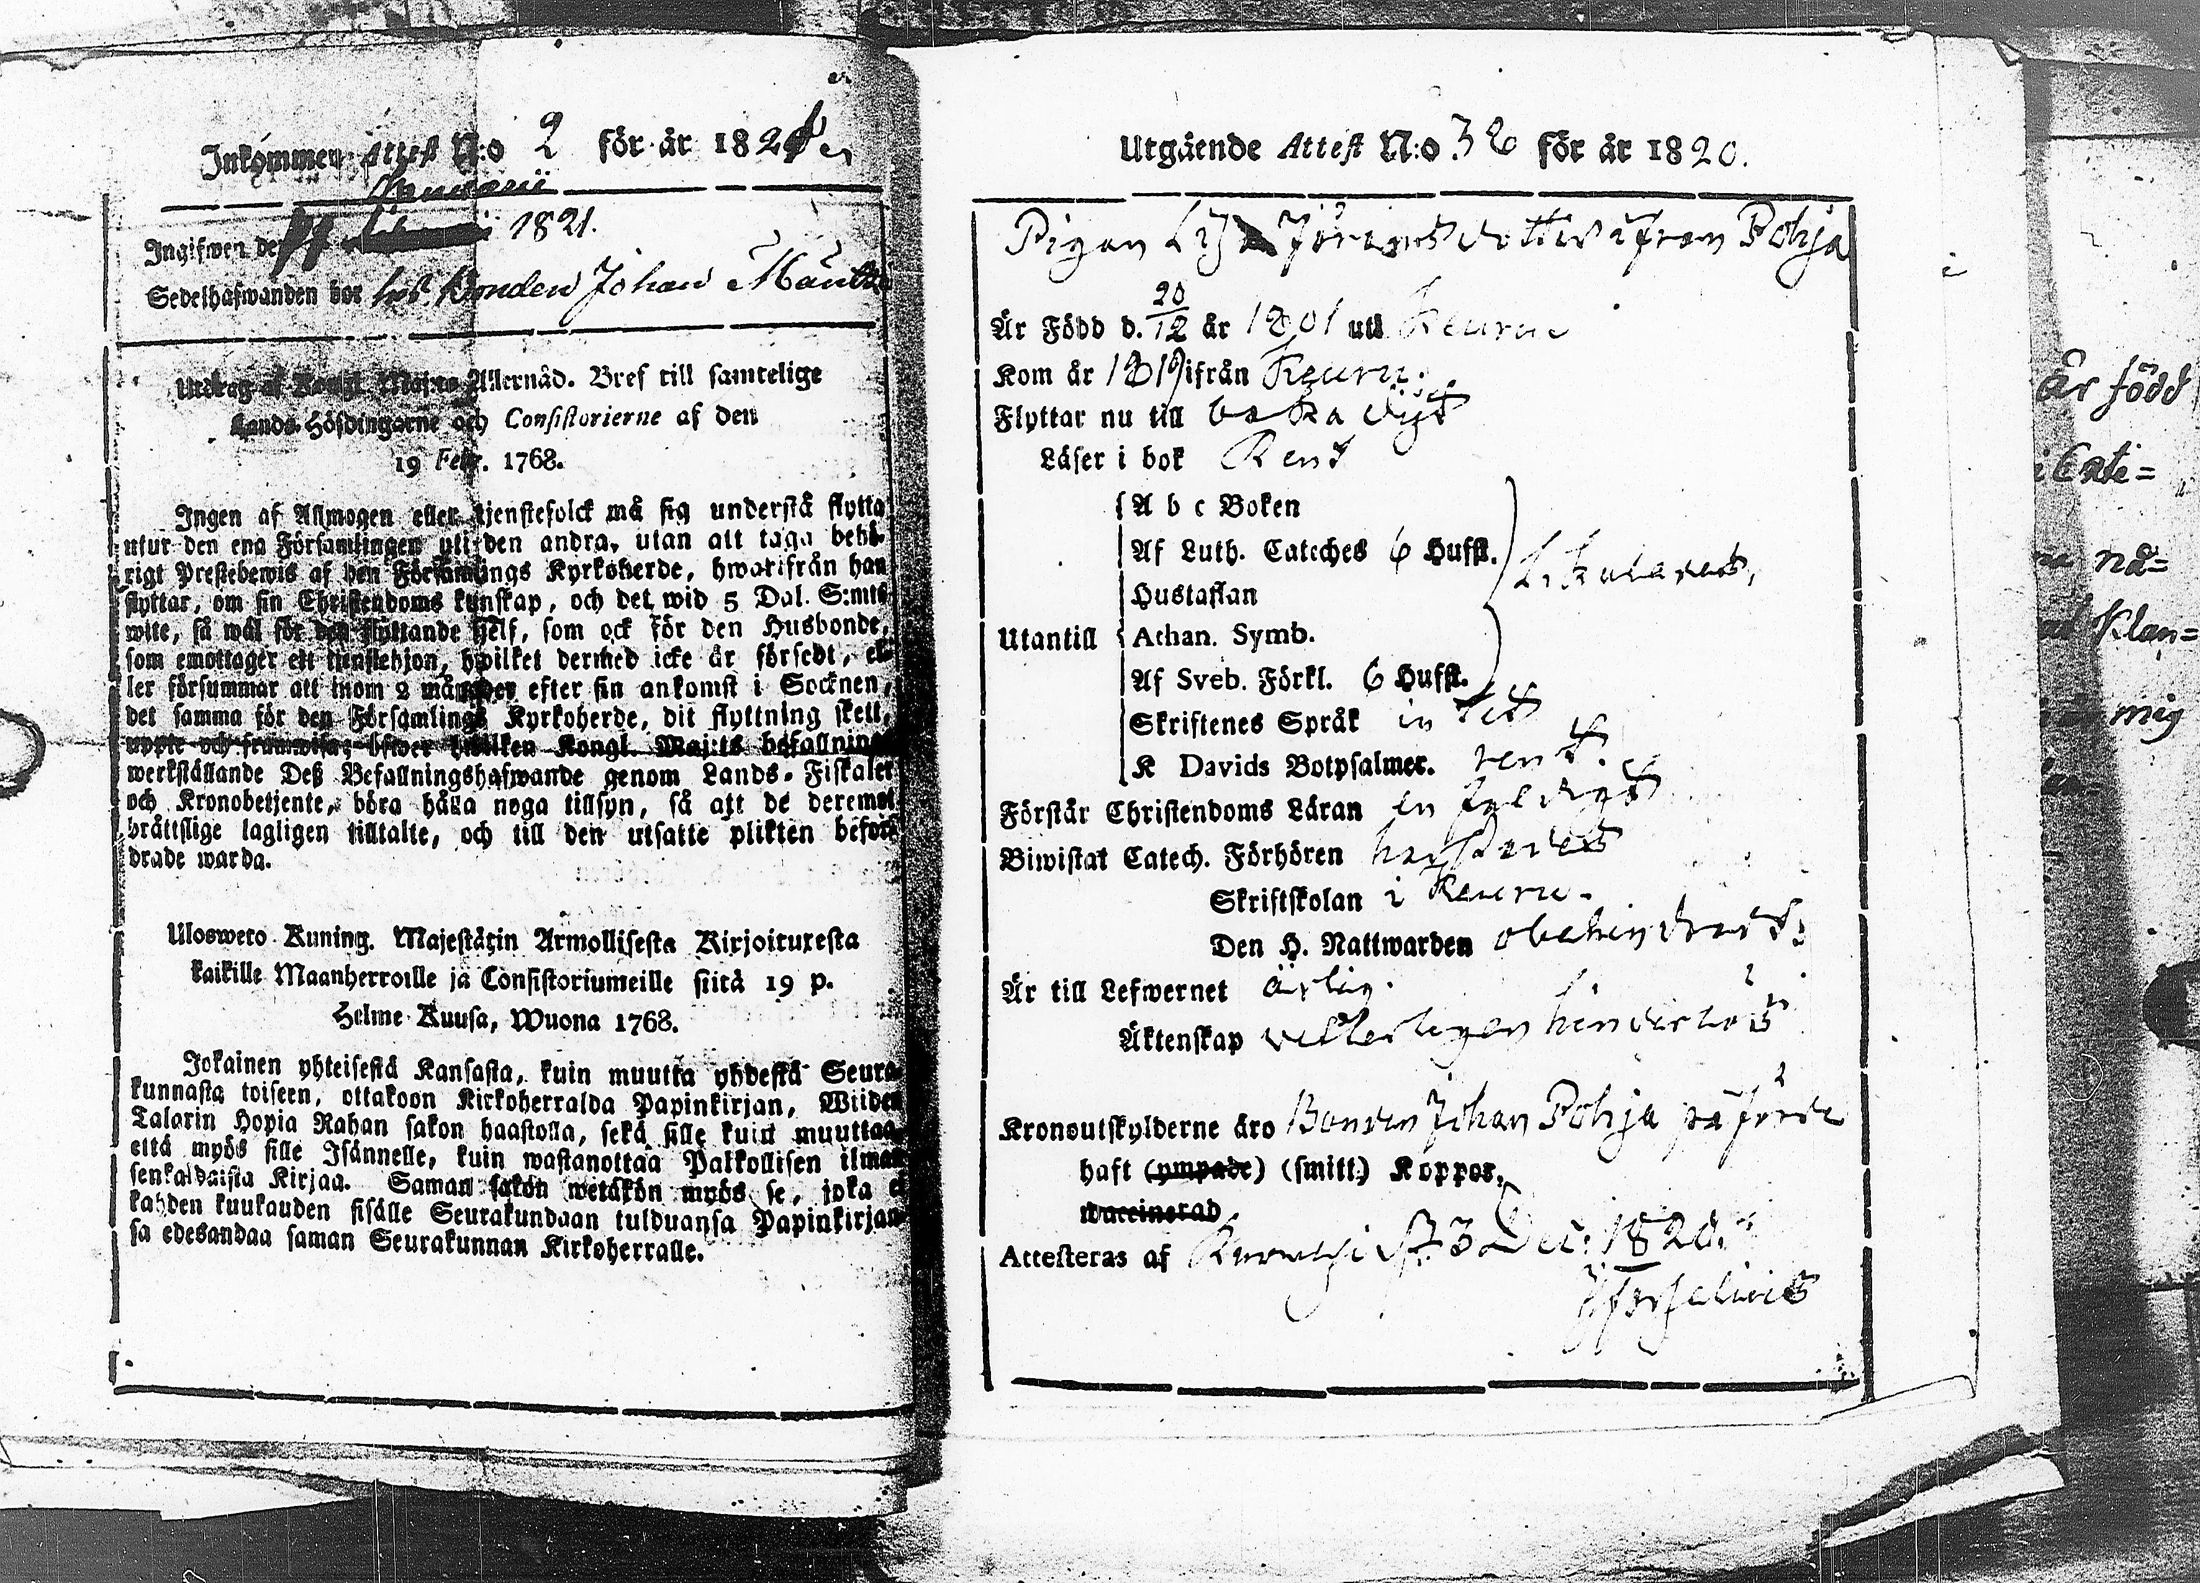 Inkommen Attest N:o 2 för år 1821
Januarii
Ingifwen den 1821.
Sedelhafwanden bor hos Bonden Johan
Utdrag af Kongl. Maj:ts Allernåd. Bref till samtelige
Lands-Höfdingarne och Consistorierne af den
19 Febr. 1768.
Ingen af Allmogen eller tjenstefolck må sig understå flytta
utur den ena Församlingen uti den andra, utan att taga behö-
rigt Prestebewis af den Församlings Kyrkoherde, hwarifrån han
flyttar, om sin Christendoms kunskap, och det wid 5 Dal. S:mts
wite, så wäl för den flyttande sjelf, som ock för den Husbonde,
som emottager ett tjenstehjon, hwilket dermed icke är försedt, el-
ler försummar att inom 2 månader efter sin ankomst i Socknen,
det samma för den Församlings Kyrkoherde, dit flyttning skett,
uppte och framwisa; öfwer hwilken Kongl. Maj:ts befallning
werkställande Deß Befallningshafwande genom Lands-Fiskaler
och Kronobetjente, böra hålla noga tillsyn, så att de deremot
bråttslige lagligen tilltalte, och till den utsatte plikten befor-
drade warda.
Uloswero Kuning. Majestätin Armollisesta Kirjoituxesta
kaikille Maanherroille ja Consistoriumeille siitä 19 p.
Helme-Kuusa, Wuona 1768.
Jokainen yhteisestä Kansasta, kuin muutta yhdestä Seura-
kunnasta toiseen, ottakoon Kirkoherralda Papinkirjan, Wiiden
Talarin Hopia Rahan sakon haastolla, sekä sille kuin muuttaa,
että myös sille Isännelle, kuin wastanottaa Palkollisen ilman
senkaldaista Kirjaa. Saman sakon wetäkön myös se, joka ei
kahden kuukauden sisälle Seurakundaan tulduansa Papinkirjan-
sa edesandaa saman Seurakunnan Kirkoherralle.
Utgående Attest N:o 36 för år 1820.
Pigan Lisa Jöransdotter ifrån Pohja
Är Född d. 20/12 år 1801 uti Keuru
Kom år 1819 ifrån Keuru.
Flyttar nu till baka dijt
Läser i bok Rent
A b c Boken
Af Luth. Cateches 6 Hufst.
Hustaflan
Utantill Athan. Symb.
Af Sveb. Förkl. 6 Hufst.
Skriftenes Språk intet
K Davids Botpsalmer. rent.
Förstår Christendoms Läran enfaldigt
Biwistat Catech. Förhören
Skriftskolan i Keuru.
Den H. Nattwarden obehindrat:
Är till Lefwernet ärlig.
Äktenskap hinderlös
Kronoutskylderne äro Bonden Johan Pohja påförde
haft (ympade) (smitt) Koppor,
waccinerad
Attesteras af d. 3 Dec. 1820.
är född
nå=
mig